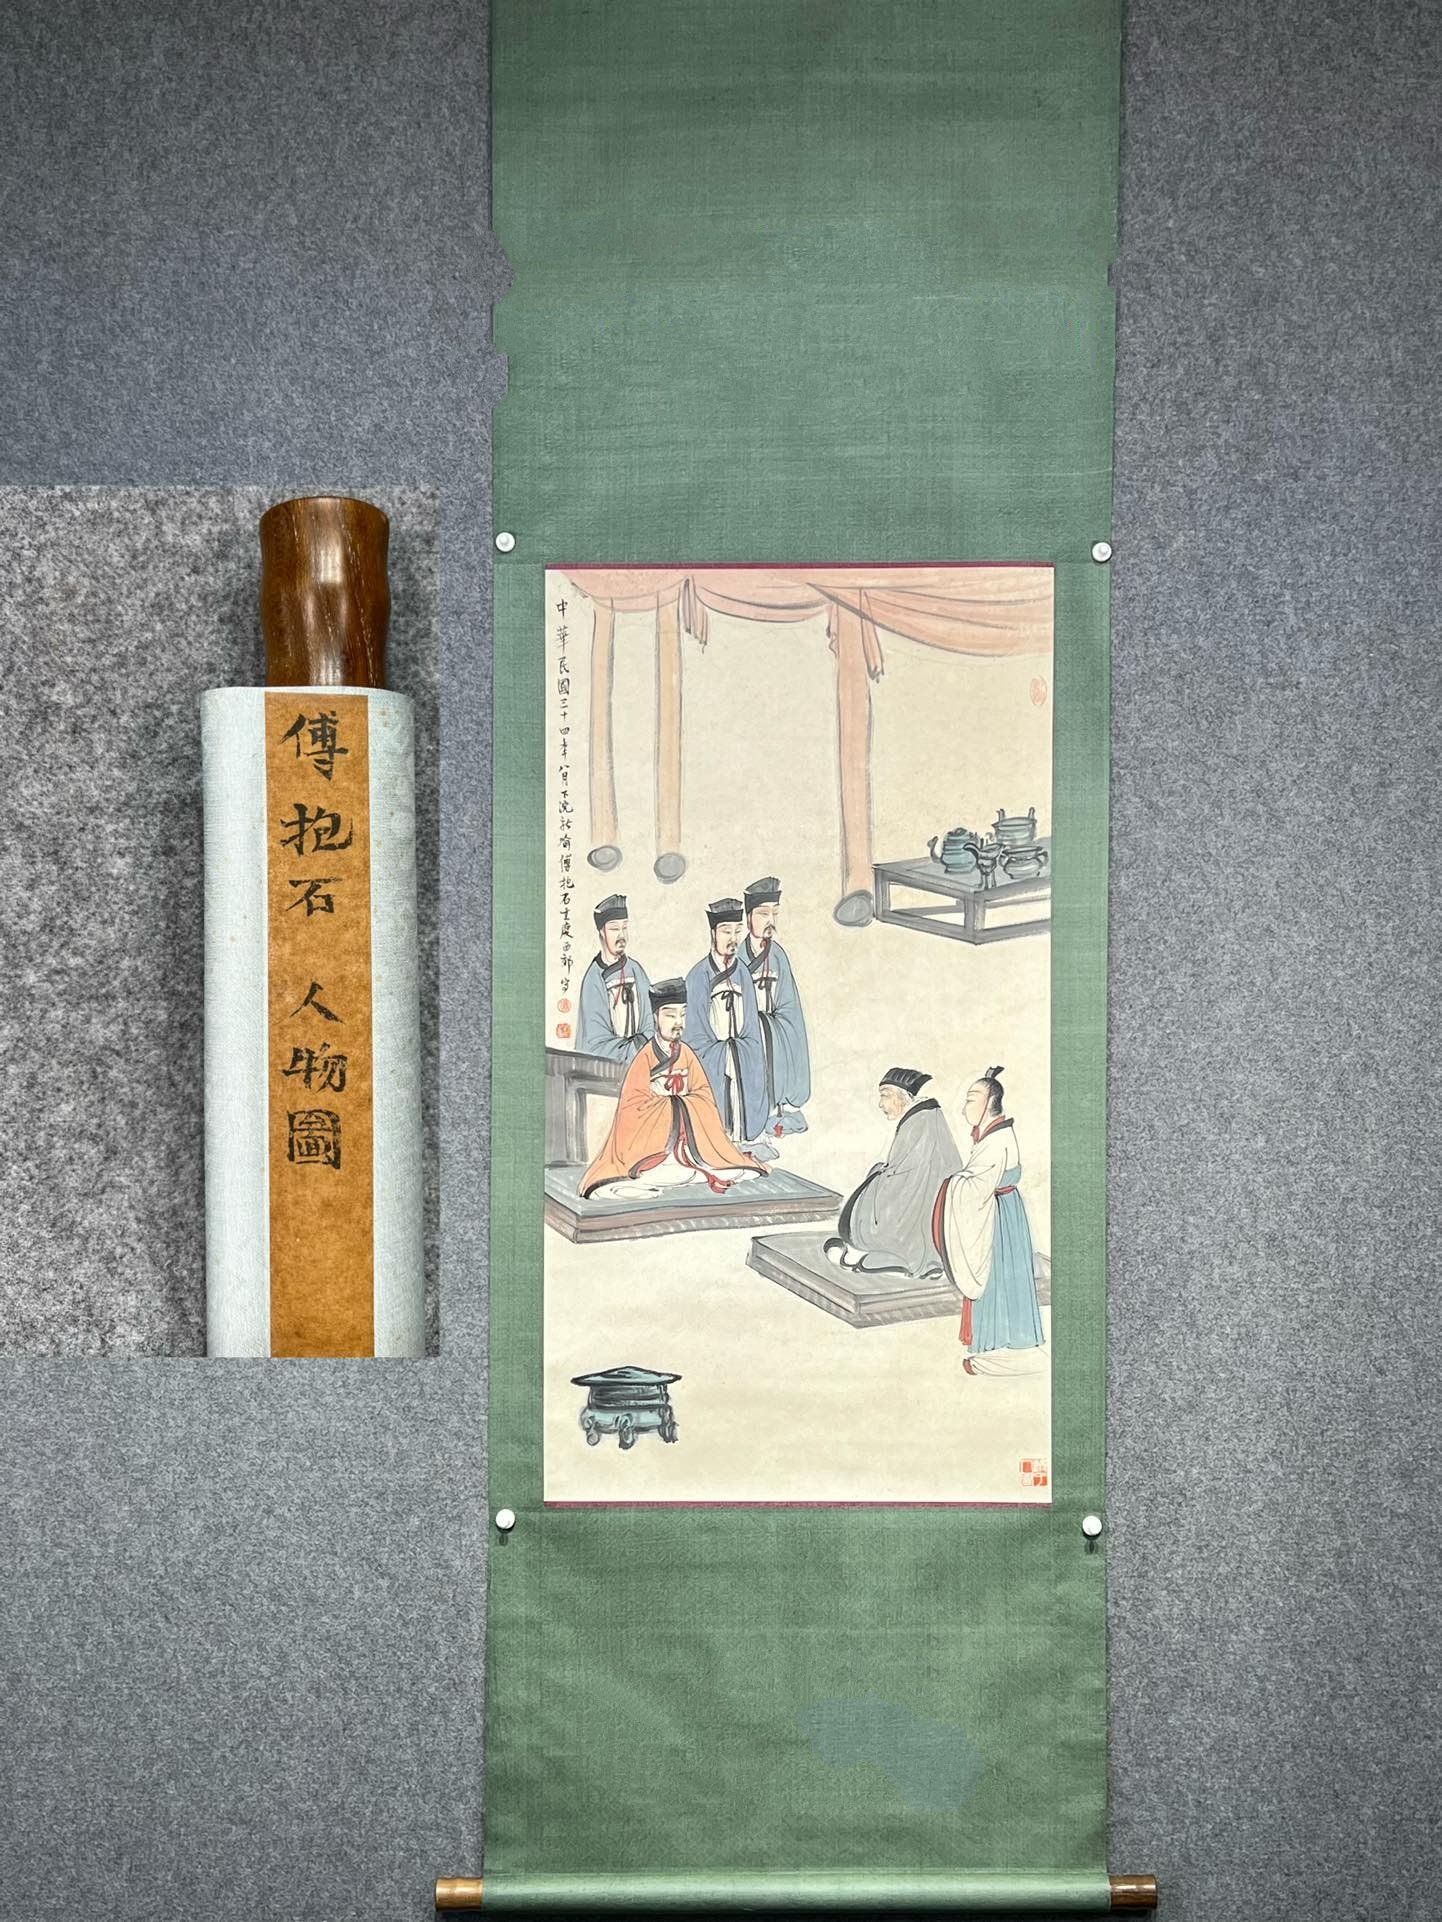 傅抱石人物圖
中華民國三十四年八月下浣新喻傅抱石重慶西郊寫